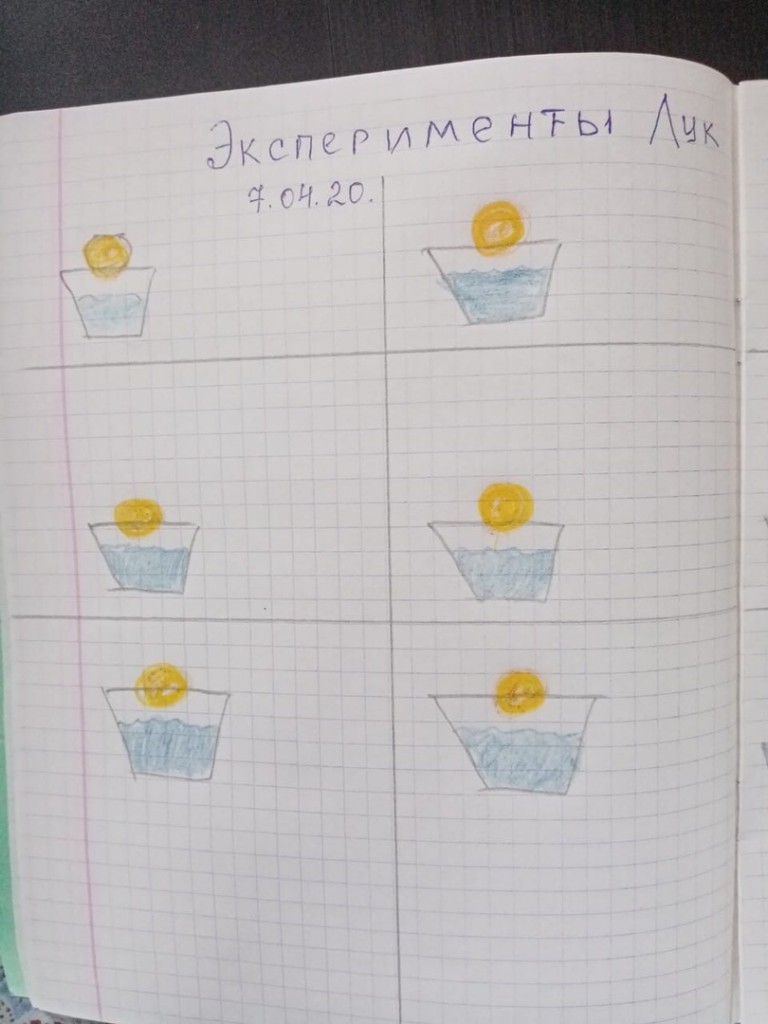 Эксперименты Лук
7.04.20.